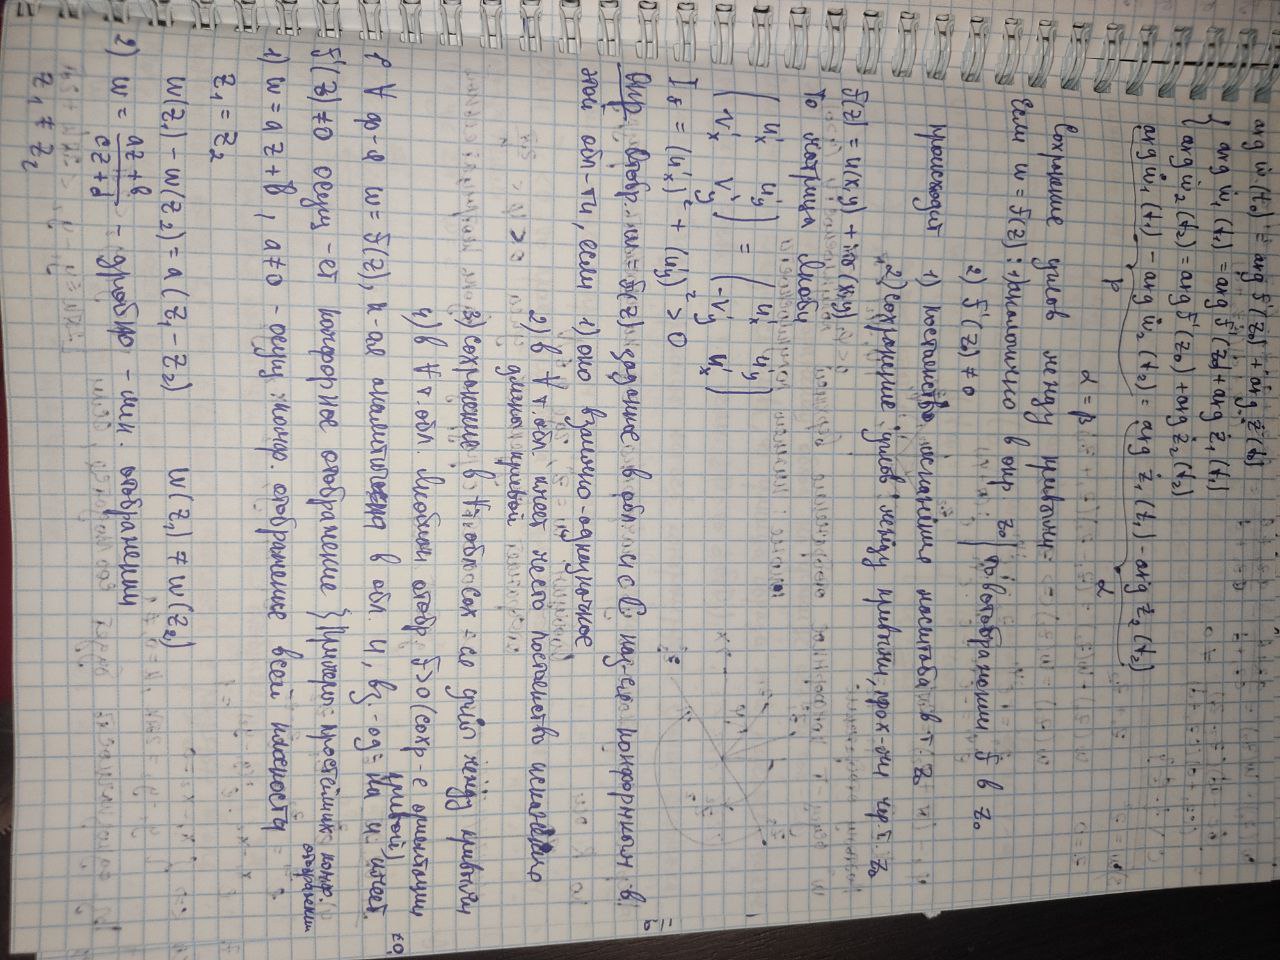 arg ẇ(t₀) = arg f'(z₀) + arg ż(t₀)
{ arg ẇ₁(t₁) = arg f'(z₀) + arg ż₁(t₁)
{ arg ẇ₂(t₂) = arg f'(z₀) + arg ż₂(t₂)
arg ẇ₁(t₁) − arg ẇ₂(t₂) = arg ż₁(t₁) − arg ż₂(t₂)
β α
α = β
Сохранение углов между кривыми
Если w = f(z): 1) аналитично в окр z₀
2) f'(z) ≠ 0
При отображении f в z₀
происходит 1) постоянство искажения масштаба в т. z₀
2) сохранение углов между кривыми, прох-ми чр. т. z₀
f(z) = u(x,y) + iv(x,y)
То матрица Якоби
( u'ₓ u'ᵧ ) = ( u'ₓ u'ᵧ )
( v'ₓ v'ᵧ ) ( −u'ᵧ u'ₓ )
I_f = (u'ₓ)² + (u'ᵧ)² > 0
Опр. Отобр. w = f(z) заданное в обл. наз-ся конформным в
этой обл-ти, если 1) оно взаимно-однозначное
2) в ∀ т. обл. имеет место постоянство искажения
длины кривой
3) сохранение в ∀ т. обл. углов между кривыми
4) в ∀ т. обл. якобиан отобр. I > 0 (сохр-е ориентации
кривой)
∀ ф-я w = f(z), к-ая аналитична в обл. и вз.-од. на и имеет
f'(z) ≠ 0 осущ-ет конформное отображение
Пример: простейших конф. отображений
1) w = az + b, a ≠ 0 − осущ. конф. отображение всей плоскости
z₁ = z₂
w(z₁) − w(z₂) = a(z₁ − z₂) w(z₁) ≠ w(z₂)
2) w = az + b / cz + d − дробно-лин. отображение
z₁ ≠ z₂